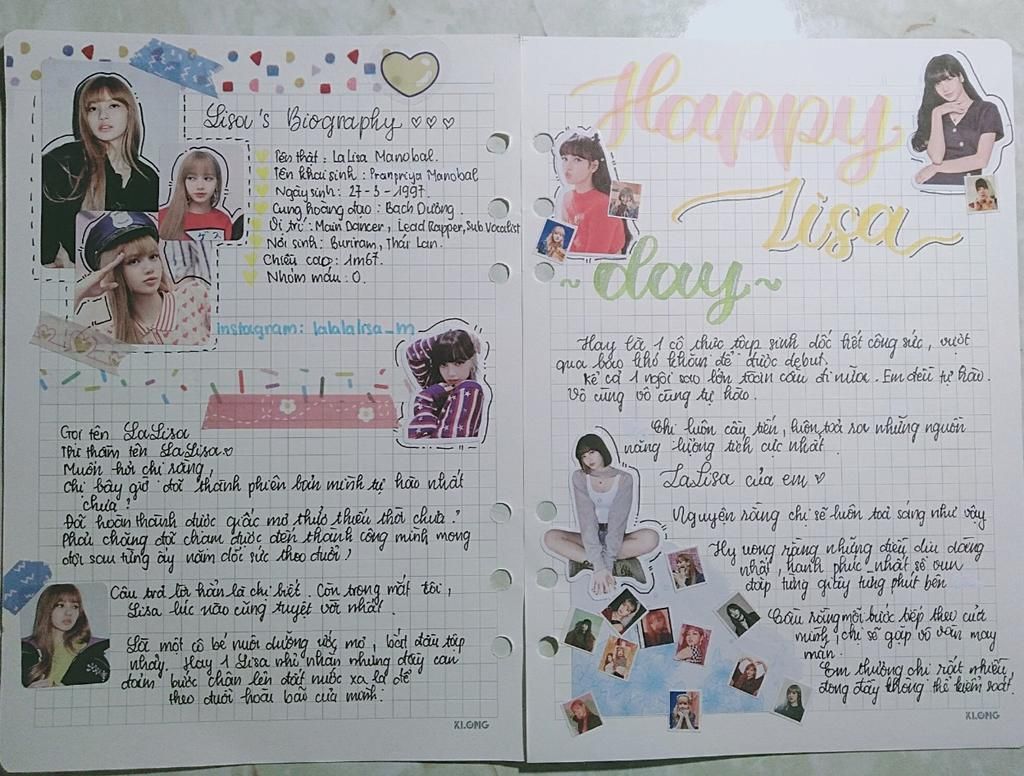 Lisa's Biography ♡♡♡
Tên thật : LaLisa Manobal.
Tên khai sinh : Pranpriya Manobal
Ngày sinh : 27 - 3 - 1997.
Cung hoàng đạo : Bạch Dương.
Vị trí : Main Dancer, Lead Rapper, Sub Vocalist
Nơi sinh : Buriram, Thái Lan.
Chiều cao : 1m67.
Nhóm máu : O.
instagram: lalalalisa_m
Gọi tên LaLisa
Thì thầm tên LaLisa ♡
Muốn hỏi chị rằng,
Chị bây giờ đã thành phiên bản mình tự hào nhất
chưa ?
Đã hoàn thành được giấc mơ thuở thiếu thời chưa ?
Phải chăng đã chạm được đến thành công mình mong
đợi sau từng ấy năm dốc sức theo đuổi ?
Câu trả lời hẳn là chị biết. Còn trong mắt tôi,
Lisa lúc nào cũng tuyệt vời nhất.
Là một cô bé nuôi dưỡng ước mơ, bắt đầu tập
nhảy. Hay 1 Lisa nhỏ nhắn nhưng đầy can
đảm bước chân lên đất nước xa lạ để
theo đuổi hoài bão của mình.
KLONG
Happy
Lisa
~ day ~
Hay là 1 cô thực tập sinh dốc hết công sức, vượt
qua bao khó khăn để được debut.
Kể cả 1 ngôi sao lớn toàn cầu đi nữa. Em đều tự hào.
Vô cùng vô cùng tự hào.
Chị luôn cầu tiến, luôn toả ra những nguồn
năng lượng tích cực nhất
LaLisa của em ♡
Nguyện rằng chị sẽ luôn toả sáng như vậy
Hy vọng rằng những điều dịu dàng
nhất, hạnh phúc nhất sẽ vun
đắp từng giây từng phút bên
Cầu rằng mỗi bước tiếp theo của
mình, chị sẽ gặp vô vàn may
mắn.
Em thương chị rất nhiều,
đong đầy không thể kiểm soát.
KLONG